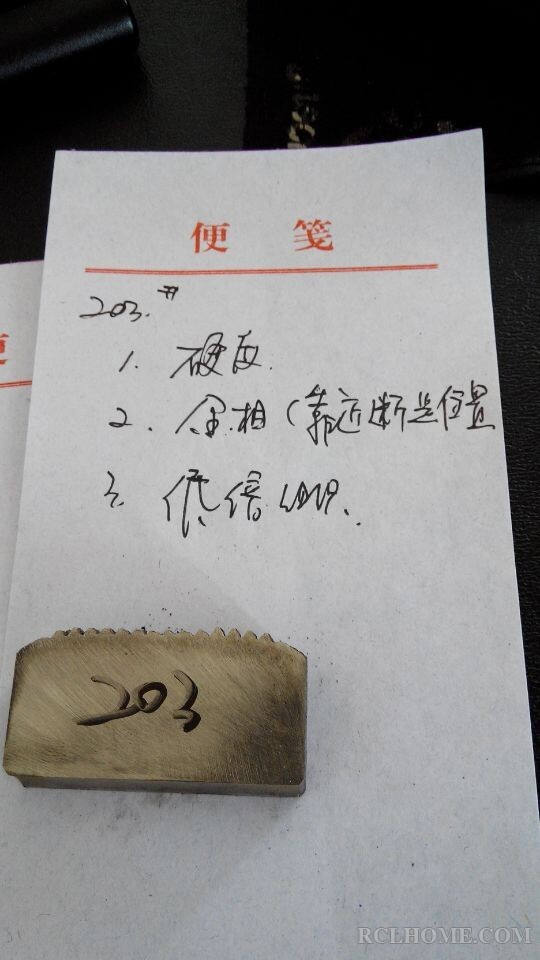 便 笺
203.#
1. 硬度.
2. 金相(靠近断齿位置
3. 低倍组织.
203
RCLHOME.COM